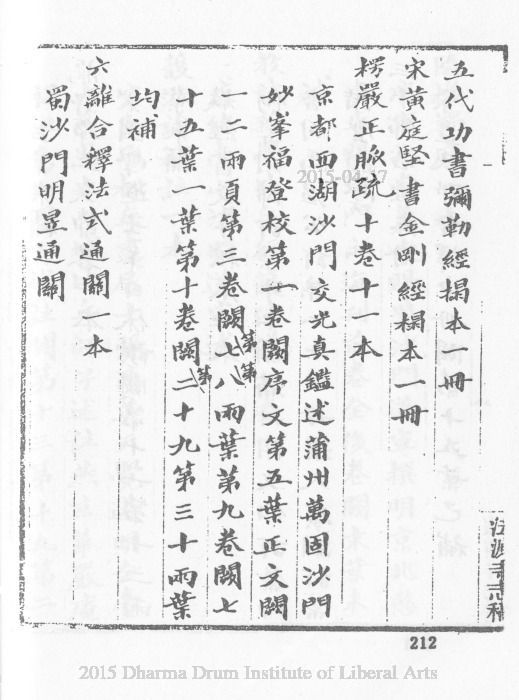 五代功書彌勒經搨本一冊
宋黃庭堅書金剛經搨本一冊
楞嚴正脈疏十卷十一本
京都西湖沙門交光真鑑述蒲州萬固沙門
妙峯福登校第一卷闕序文第五葉正文闕
一二兩頁第三卷闕第七第八兩葉第九卷闕七
十五葉一葉第十卷闕第二十九第三十兩葉
均補
六離合釋法式通關一本
蜀沙門明昱通關
212
2015-04-17
2015 Dharma Drum Institute of Liberal Arts